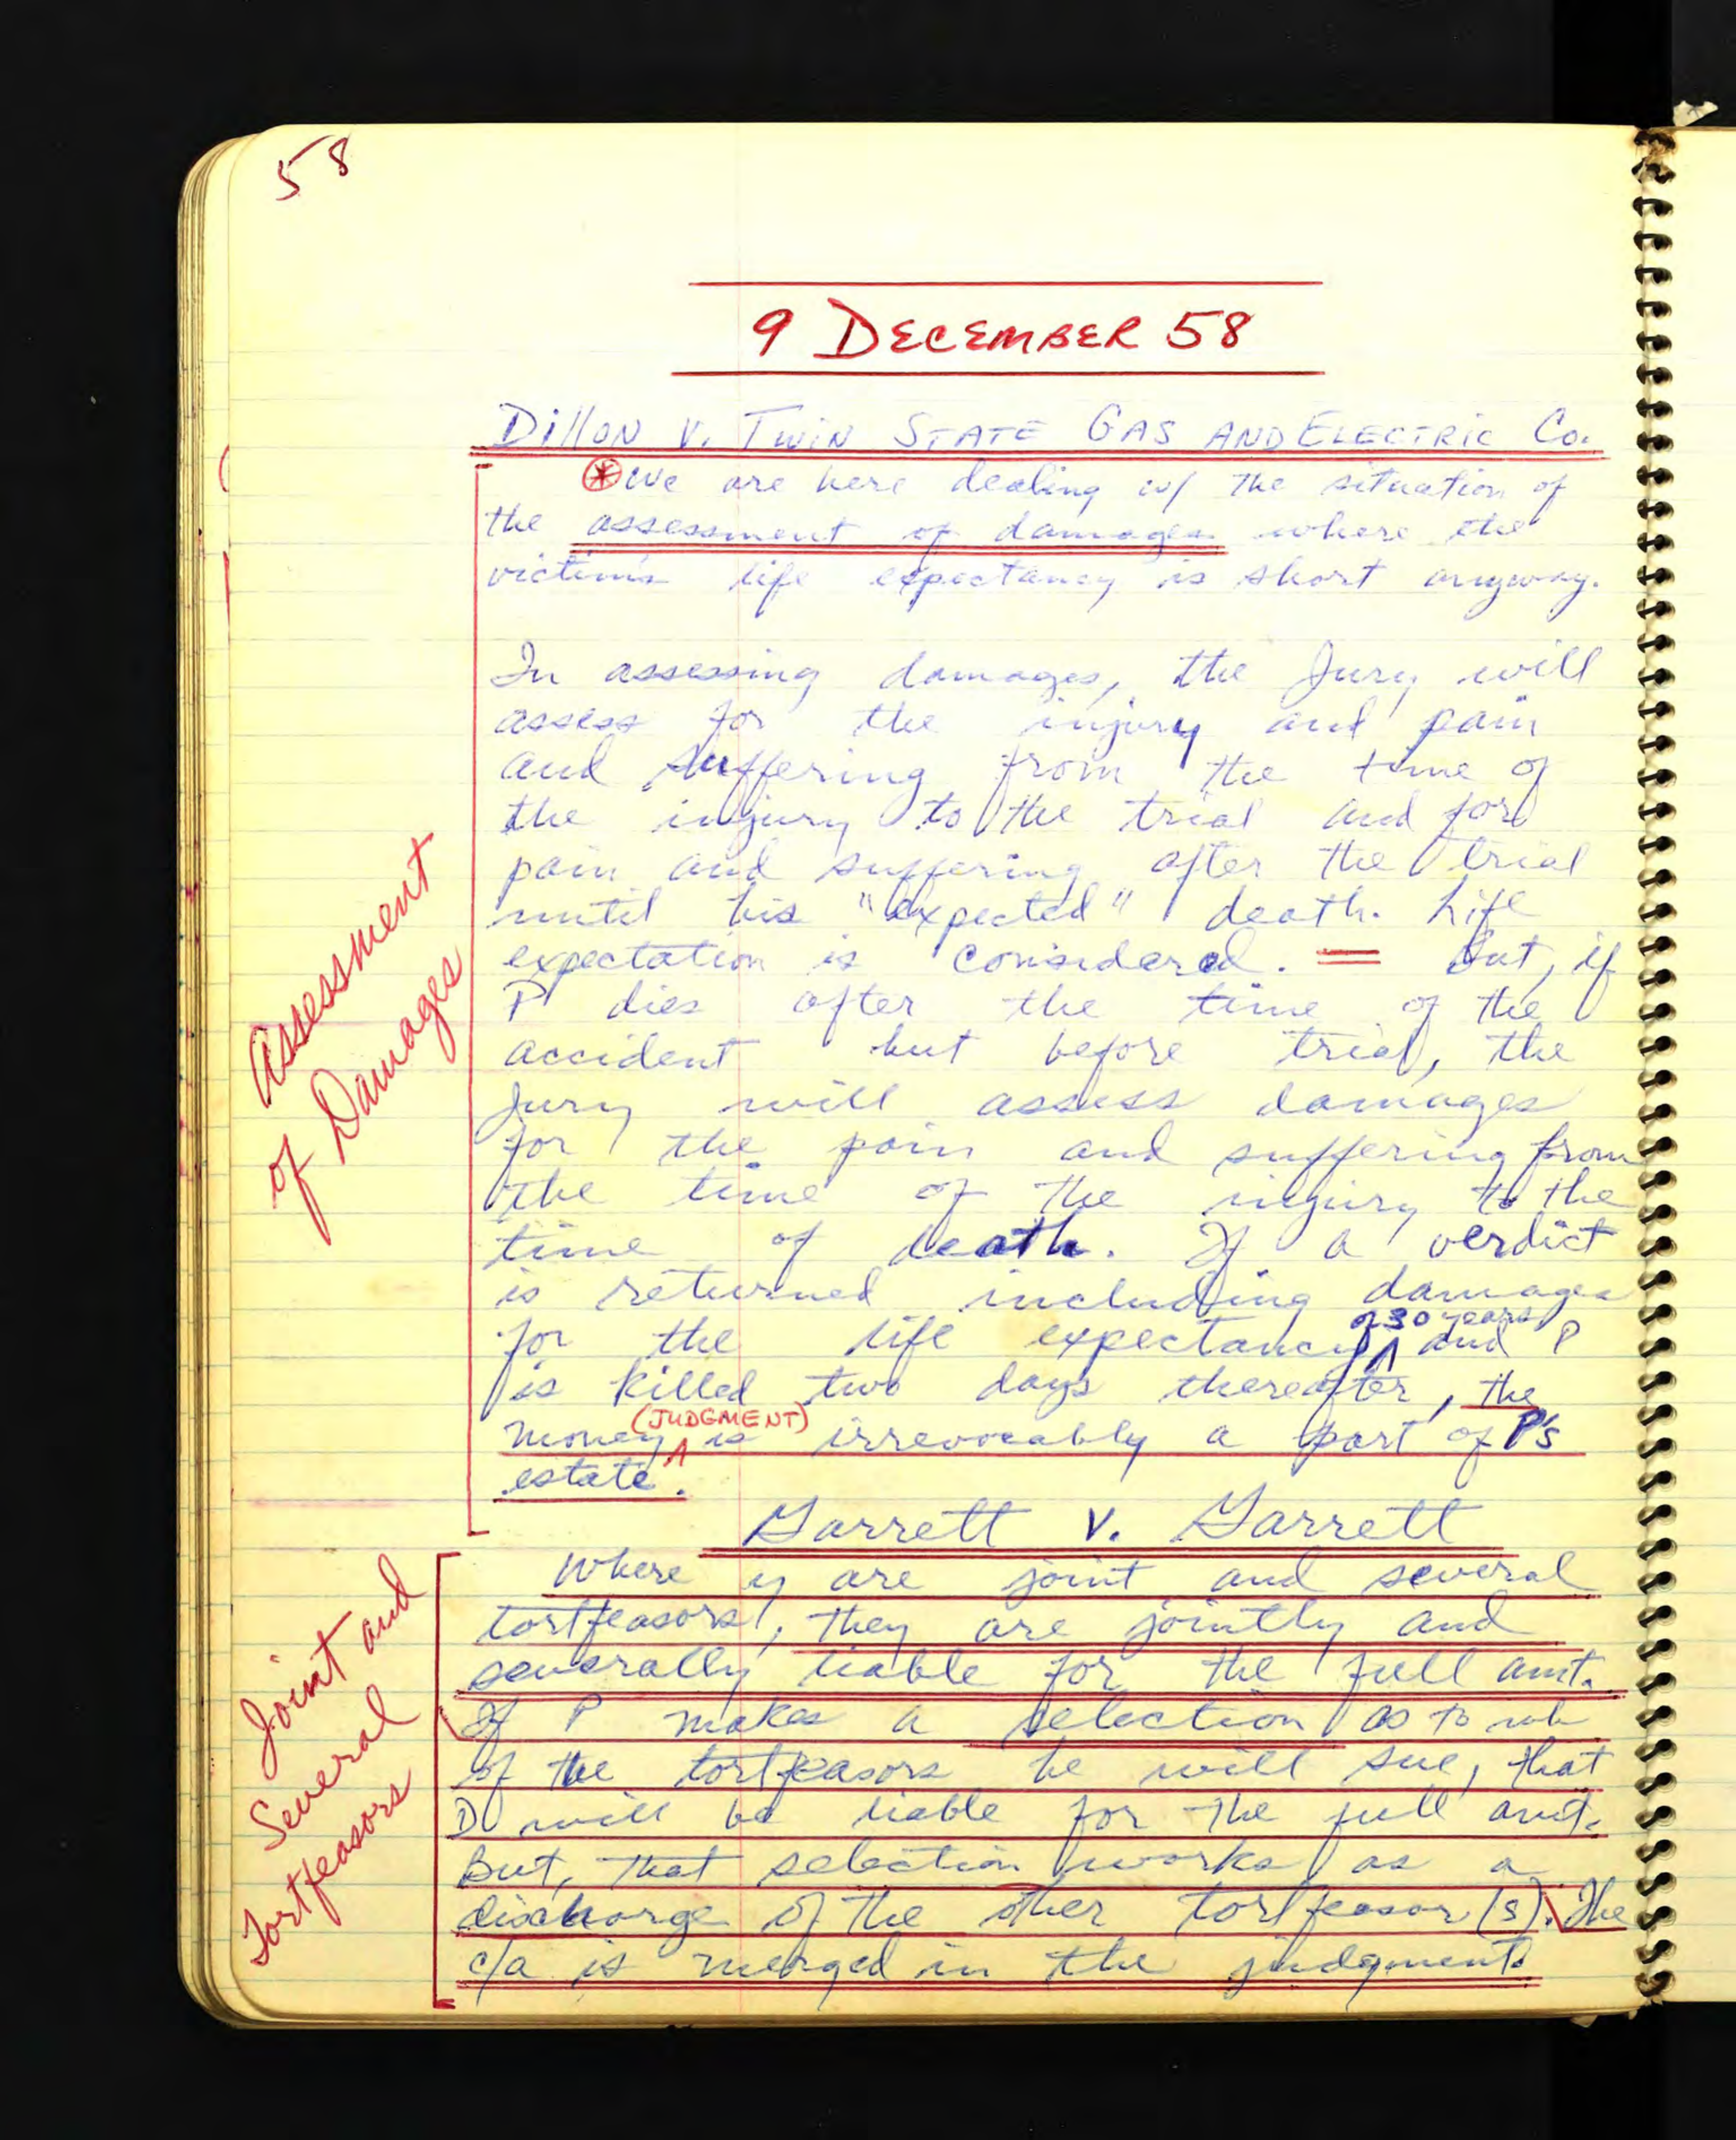 58
9 DECEMBER 58
Dillon v. Twin State Gas and Electric Co.
* We are here dealing w/ the situation of
the assessment of damages where the
victim's life expectancy is short anyway.
In assessing damages, the Jury will
assess for the injury and pain
and suffering from the time of
the injury to the trial and for
pain and suffering after the trial
until his "expected" death. Life
expectation is considered. = But, if
P dies after the time of the
accident but before trial, the
Jury will assess damages
for the pain and suffering from
the time of the injury to the
time of death. If a verdict
is returned including damages
for the life expectancy of 30 years and P
is killed two days thereafter, the
money (JUDGMENT) is irrevocably a part of P's
estate.
Assessment
of Damages
Garrett v. Garrett
Where y are joint and several
tortfeasors, they are jointly and
severally liable for the full amt.
If P makes a selection as to wh
of the tortfeasors he will sue, that
D will be liable for the full amt.
But, that selection works as a
discharge of the other tortfeasor(s). The
c/a is merged in the judgment.
Joint and
Several
Tortfeasors